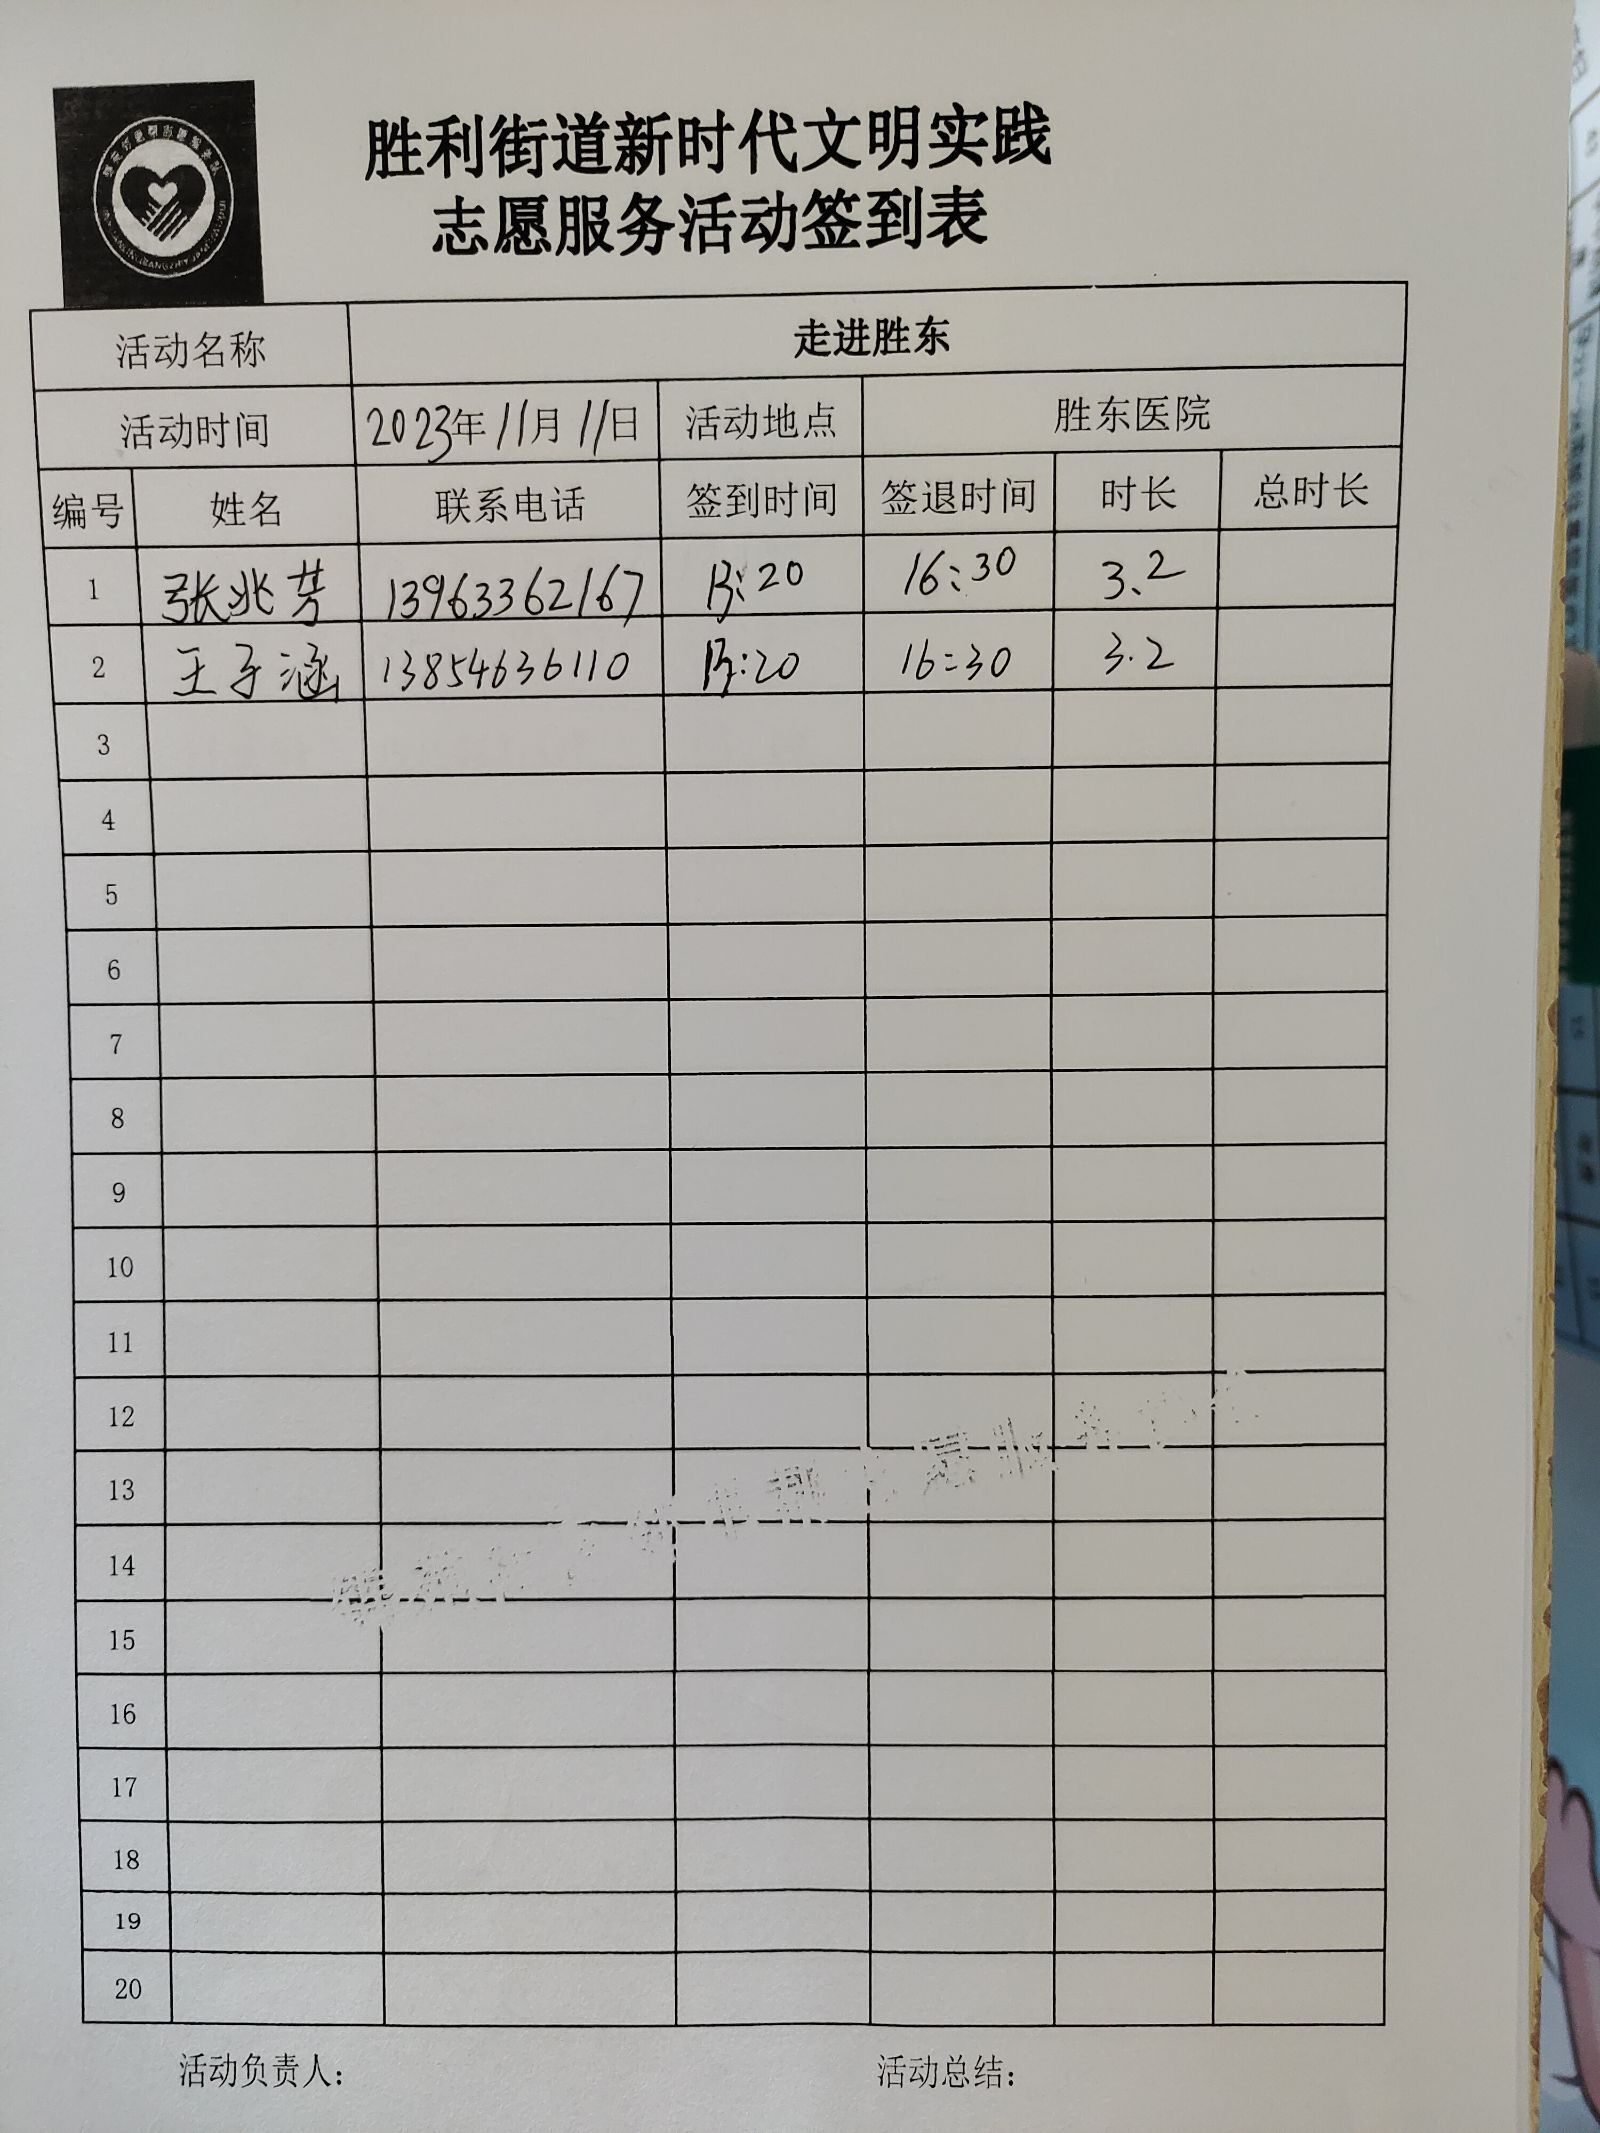 胜利街道新时代文明实践
志愿服务活动签到表
活动名称 走进胜东
活动时间 2023年11月11日 活动地点 胜东医院
编号 姓名 联系电话 签到时间 签退时间 时长 总时长
1 张兆芳 13963362167 13:20 16:30 3.2
2 王子涵 13854636110 13:20 16:30 3.2
3
4
5
6
7
8
9
10
11
12
13
14
15
16
17
18
19
20
活动负责人： 活动总结：